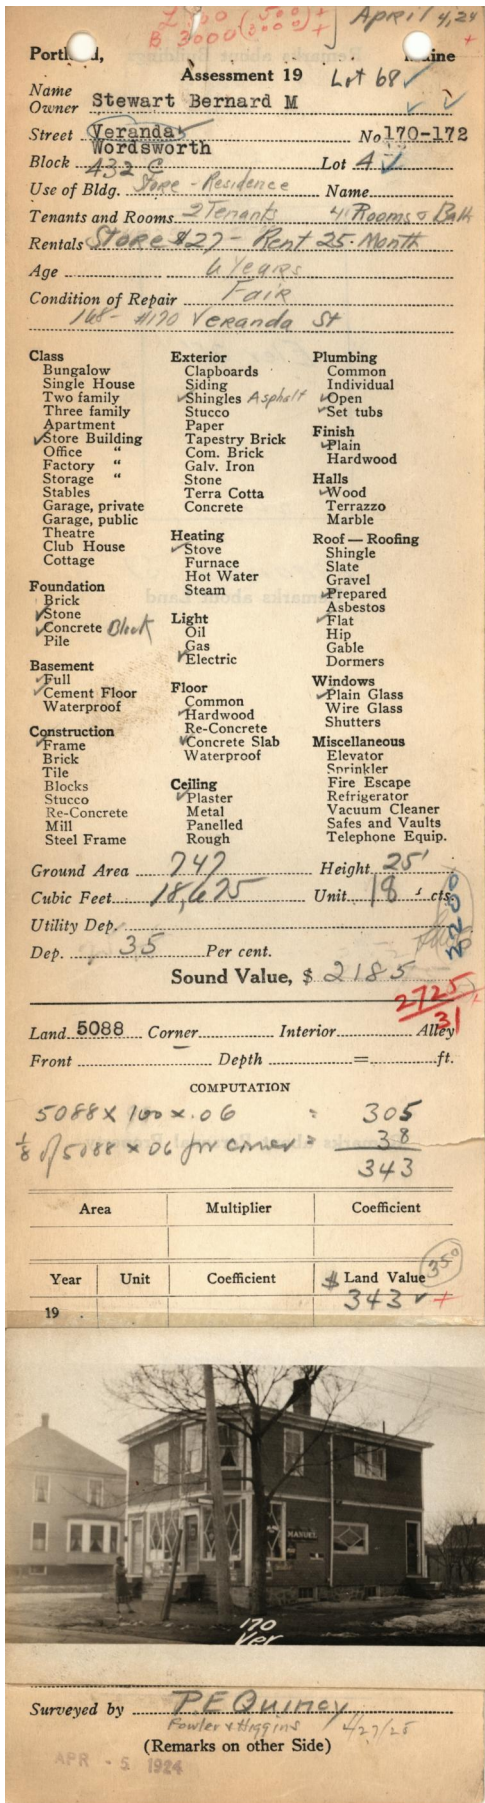 L 500 (500) +
B. 3000 (3000) +
April 4, 24
+
Portland, Maine
Assessment 19 Lot 68 ✓
Name
Owner Stewart Bernard M
Street Veranda No 170-172
Wordsworth
Block 432 C Lot 4
Use of Bldg. Store - Residence Name
Tenants and Rooms 2 Tenants 4 Rooms & Bath
Rentals Store $27 - Rent 25. Month
Age 6 Years
Condition of Repair Fair
168- #170 Veranda St
Class
Bungalow
Single House
Two family
Three family
Apartment
✓Store Building
Office "
Factory "
Storage "
Stables
Garage, private
Garage, public
Theatre
Club House
Cottage
Foundation
Brick
✓Stone
✓Concrete Block
Pile
Basement
✓Full
✓Cement Floor
Waterproof
Construction
✓Frame
Brick
Tile
Blocks
Stucco
Re-Concrete
Mill
Steel Frame
Exterior
Clapboards
Siding
✓Shingles Asphalt
Stucco
Paper
Tapestry Brick
Com. Brick
Galv. Iron
Stone
Terra Cotta
Concrete
Heating
✓Stove
Furnace
Hot Water
Steam
Light
Oil
Gas
✓Electric
Floor
Common
✓Hardwood
Re-Concrete
✓Concrete Slab
Waterproof
Ceiling
✓Plaster
Metal
Panelled
Rough
Plumbing
Common
Individual
✓Open
✓Set tubs
Finish
✓Plain
Hardwood
Halls
✓Wood
Terrazzo
Marble
Roof — Roofing
Shingle
Slate
Gravel
✓Prepared
Asbestos
✓Flat
Hip
Gable
Dormers
Windows
✓Plain Glass
Wire Glass
Shutters
Miscellaneous
Elevator
Sprinkler
Fire Escape
Refrigerator
Vacuum Cleaner
Safes and Vaults
Telephone Equip.
Ground Area 747 Height 25'
Cubic Feet 18,675 Unit 18 cts.
2200
Utility Dep.
Dep. 35 Per cent.
Sound Value, $ 2185
2725 +
31
Land 5088 Corner Interior Alley
Front Depth = ft.
COMPUTATION
5088 x 100 x .06 = 305
1/8 of 5088 x 06 for corner = 38
343
Area Multiplier Coefficient
Year Unit Coefficient $ Land Value
350
19 343 ✓ +
MANUEL
170
Ver
Surveyed by P E Quincy
Fowler & Higgins 4/27/25
(Remarks on other Side)
APR - 5 1924